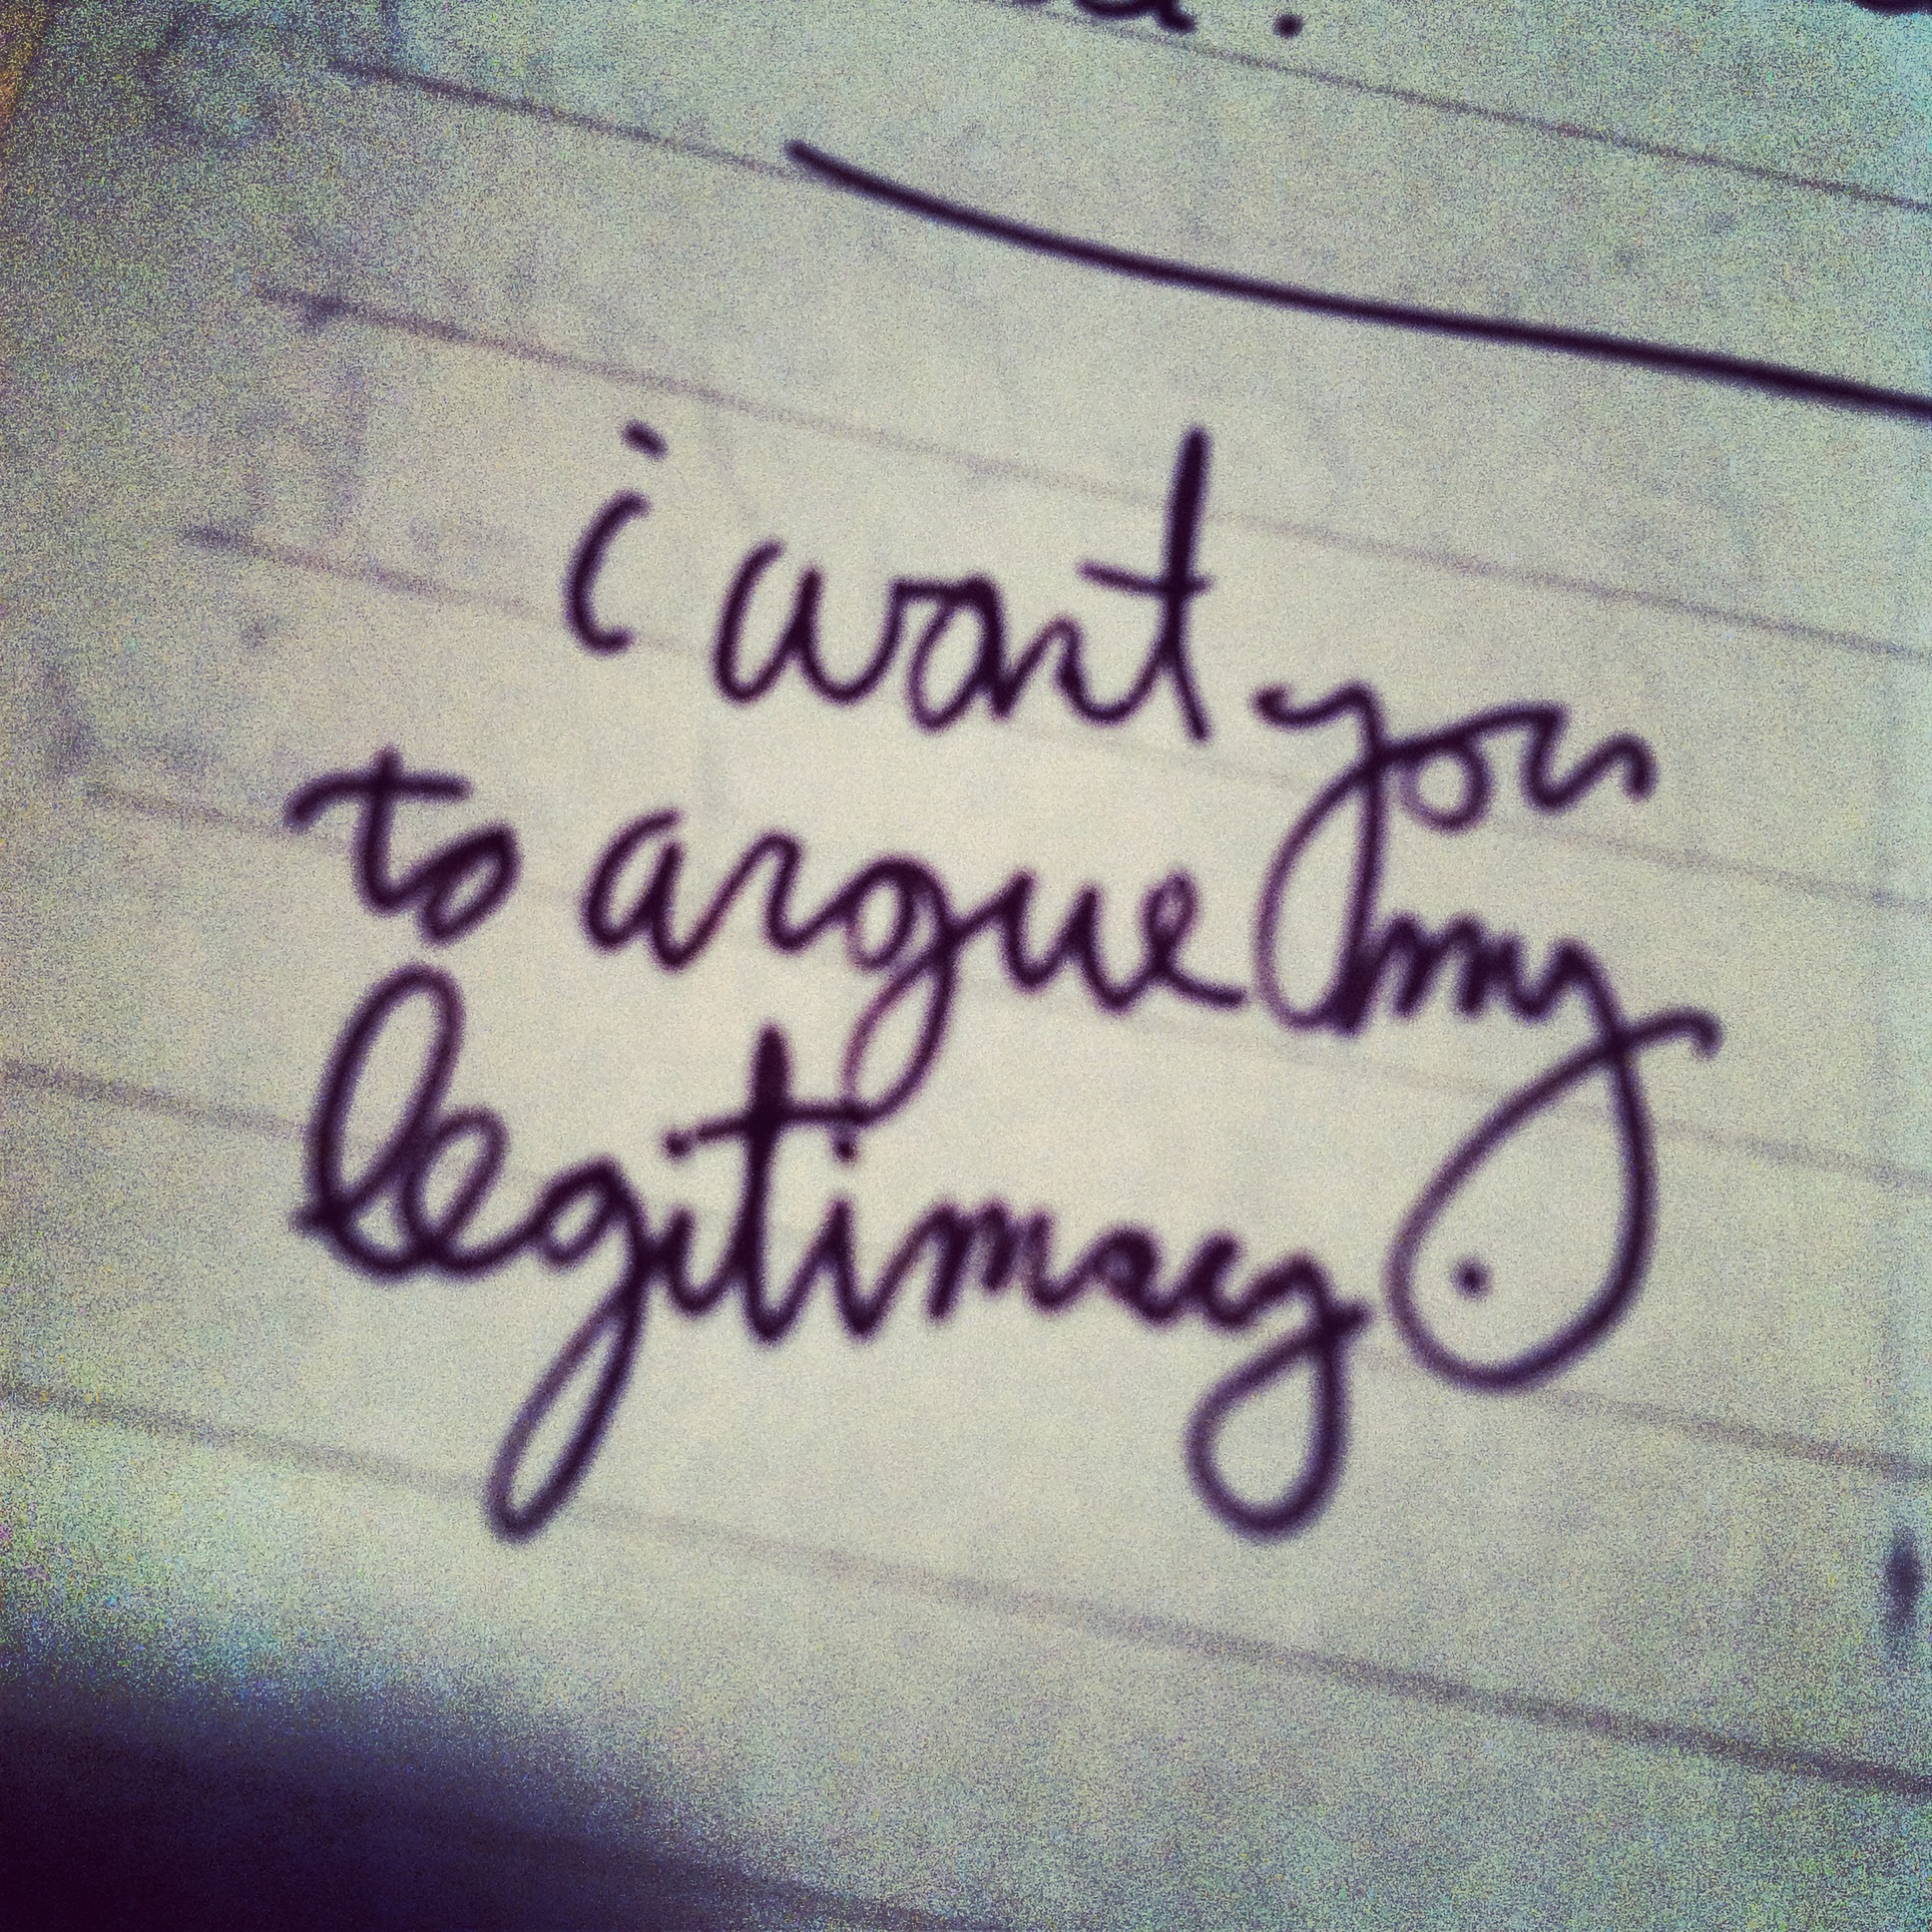 i want you
to argue my
legitimacy.